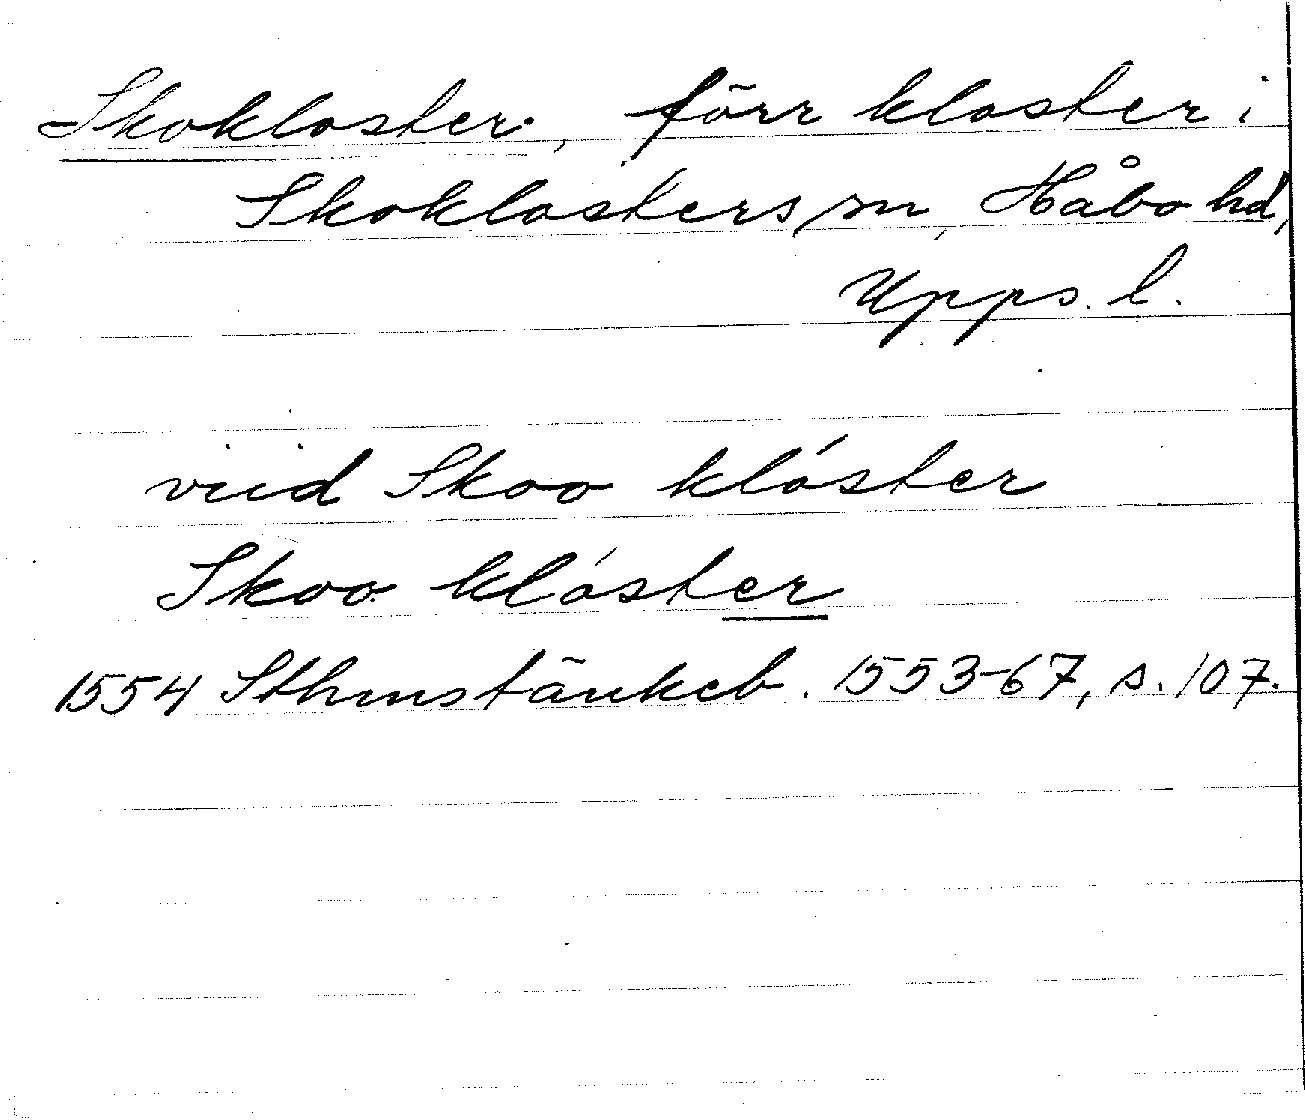 Skokloster, förr kloster i
Skoklosters sn, Håbo hd,
Upps. l.
viid Skoo klóster
Skoo klóster
1554 Sthmstänkeb. 1553-67, s. 107.